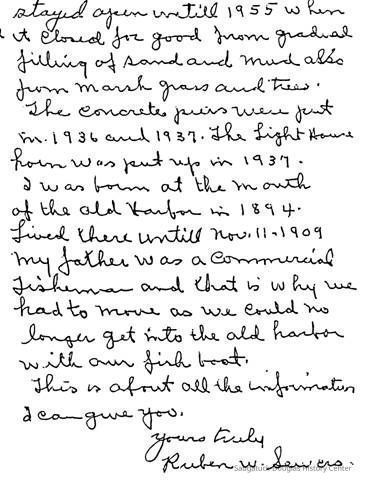 stayed open untill 1955 when
it closed for good from gradual
filling of sand and mud also
from marsh grass and trees.
The concrete piers were put
in 1936 and 1937. The Light House
horn was put up in 1937.
I was born at the mouth
of the old Harbor in 1894.
Lived there untill Nov. 11-1909
My father was a Commercial
Fisherman and that is why we
had to move as we could no
longer get into the old harbor
with our fish boat.
This is about all the information
I can give you.
Yours truly
Ruben W. Sewers.
Saugatuck-Douglas History Center